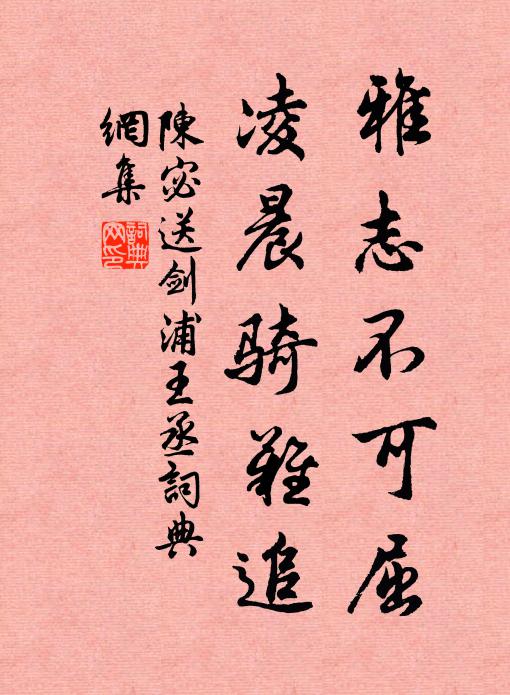 雅志不可屈
凌晨騎難追
陳宓送劍浦王丞詞典
網集
詞典网印